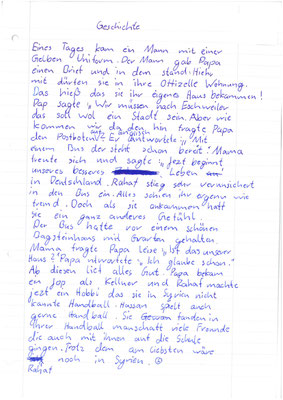 Geschichte
Eines Tages kam ein Mann mit einer
Gelben Uniform. Der Mann gab Papa
einen Brief und in dem stand: Hihr
mit dürfen sie in ihre Offizelle Wohnung.
Das hieß das sie ihr eigenes Haus bekammen!
Pap sagte „Wir müssen nach Eschweiler
das soll wol ein Stadt sein. Aber wie
kommen wir da den hin fragte Papa
den Postboten auf englisch. Er antwortete: „Mit
einem Bus der steht schon bereit." Mama
freute sich und sagte „Jezt beginnt
unseres besseres Leben
in Deutschland. Rahat stieg sehr verunsichert
in den Bus ein. Alles schien ihr irgenw wie
fremd. Doch als sie ankammen hatt
sie ein ganz anderes Gefühl.
Der Bus hatte vor einem schönen
Bagsteinhaus mit Gaarten gehalten.
Mama fragte Papa leise „Ist das unser
Haus?" Papa antwortete „Ich glaube schon."
Ab diesen lief alles Gut. Papa bekam
ein Jop als Kellner und Rahat machte
jezt ein Hobbi das sie in Syrien nicht
kannte Handball. Hassan spielt auch
gerne Handball. Sie fanden in
Ihrer Handball manschaft viele Freunde
die auch mit ihnen auf die Schule
gingen. Trotz dem am liebsten wäre
noch in Syrien. ☹
Rahat